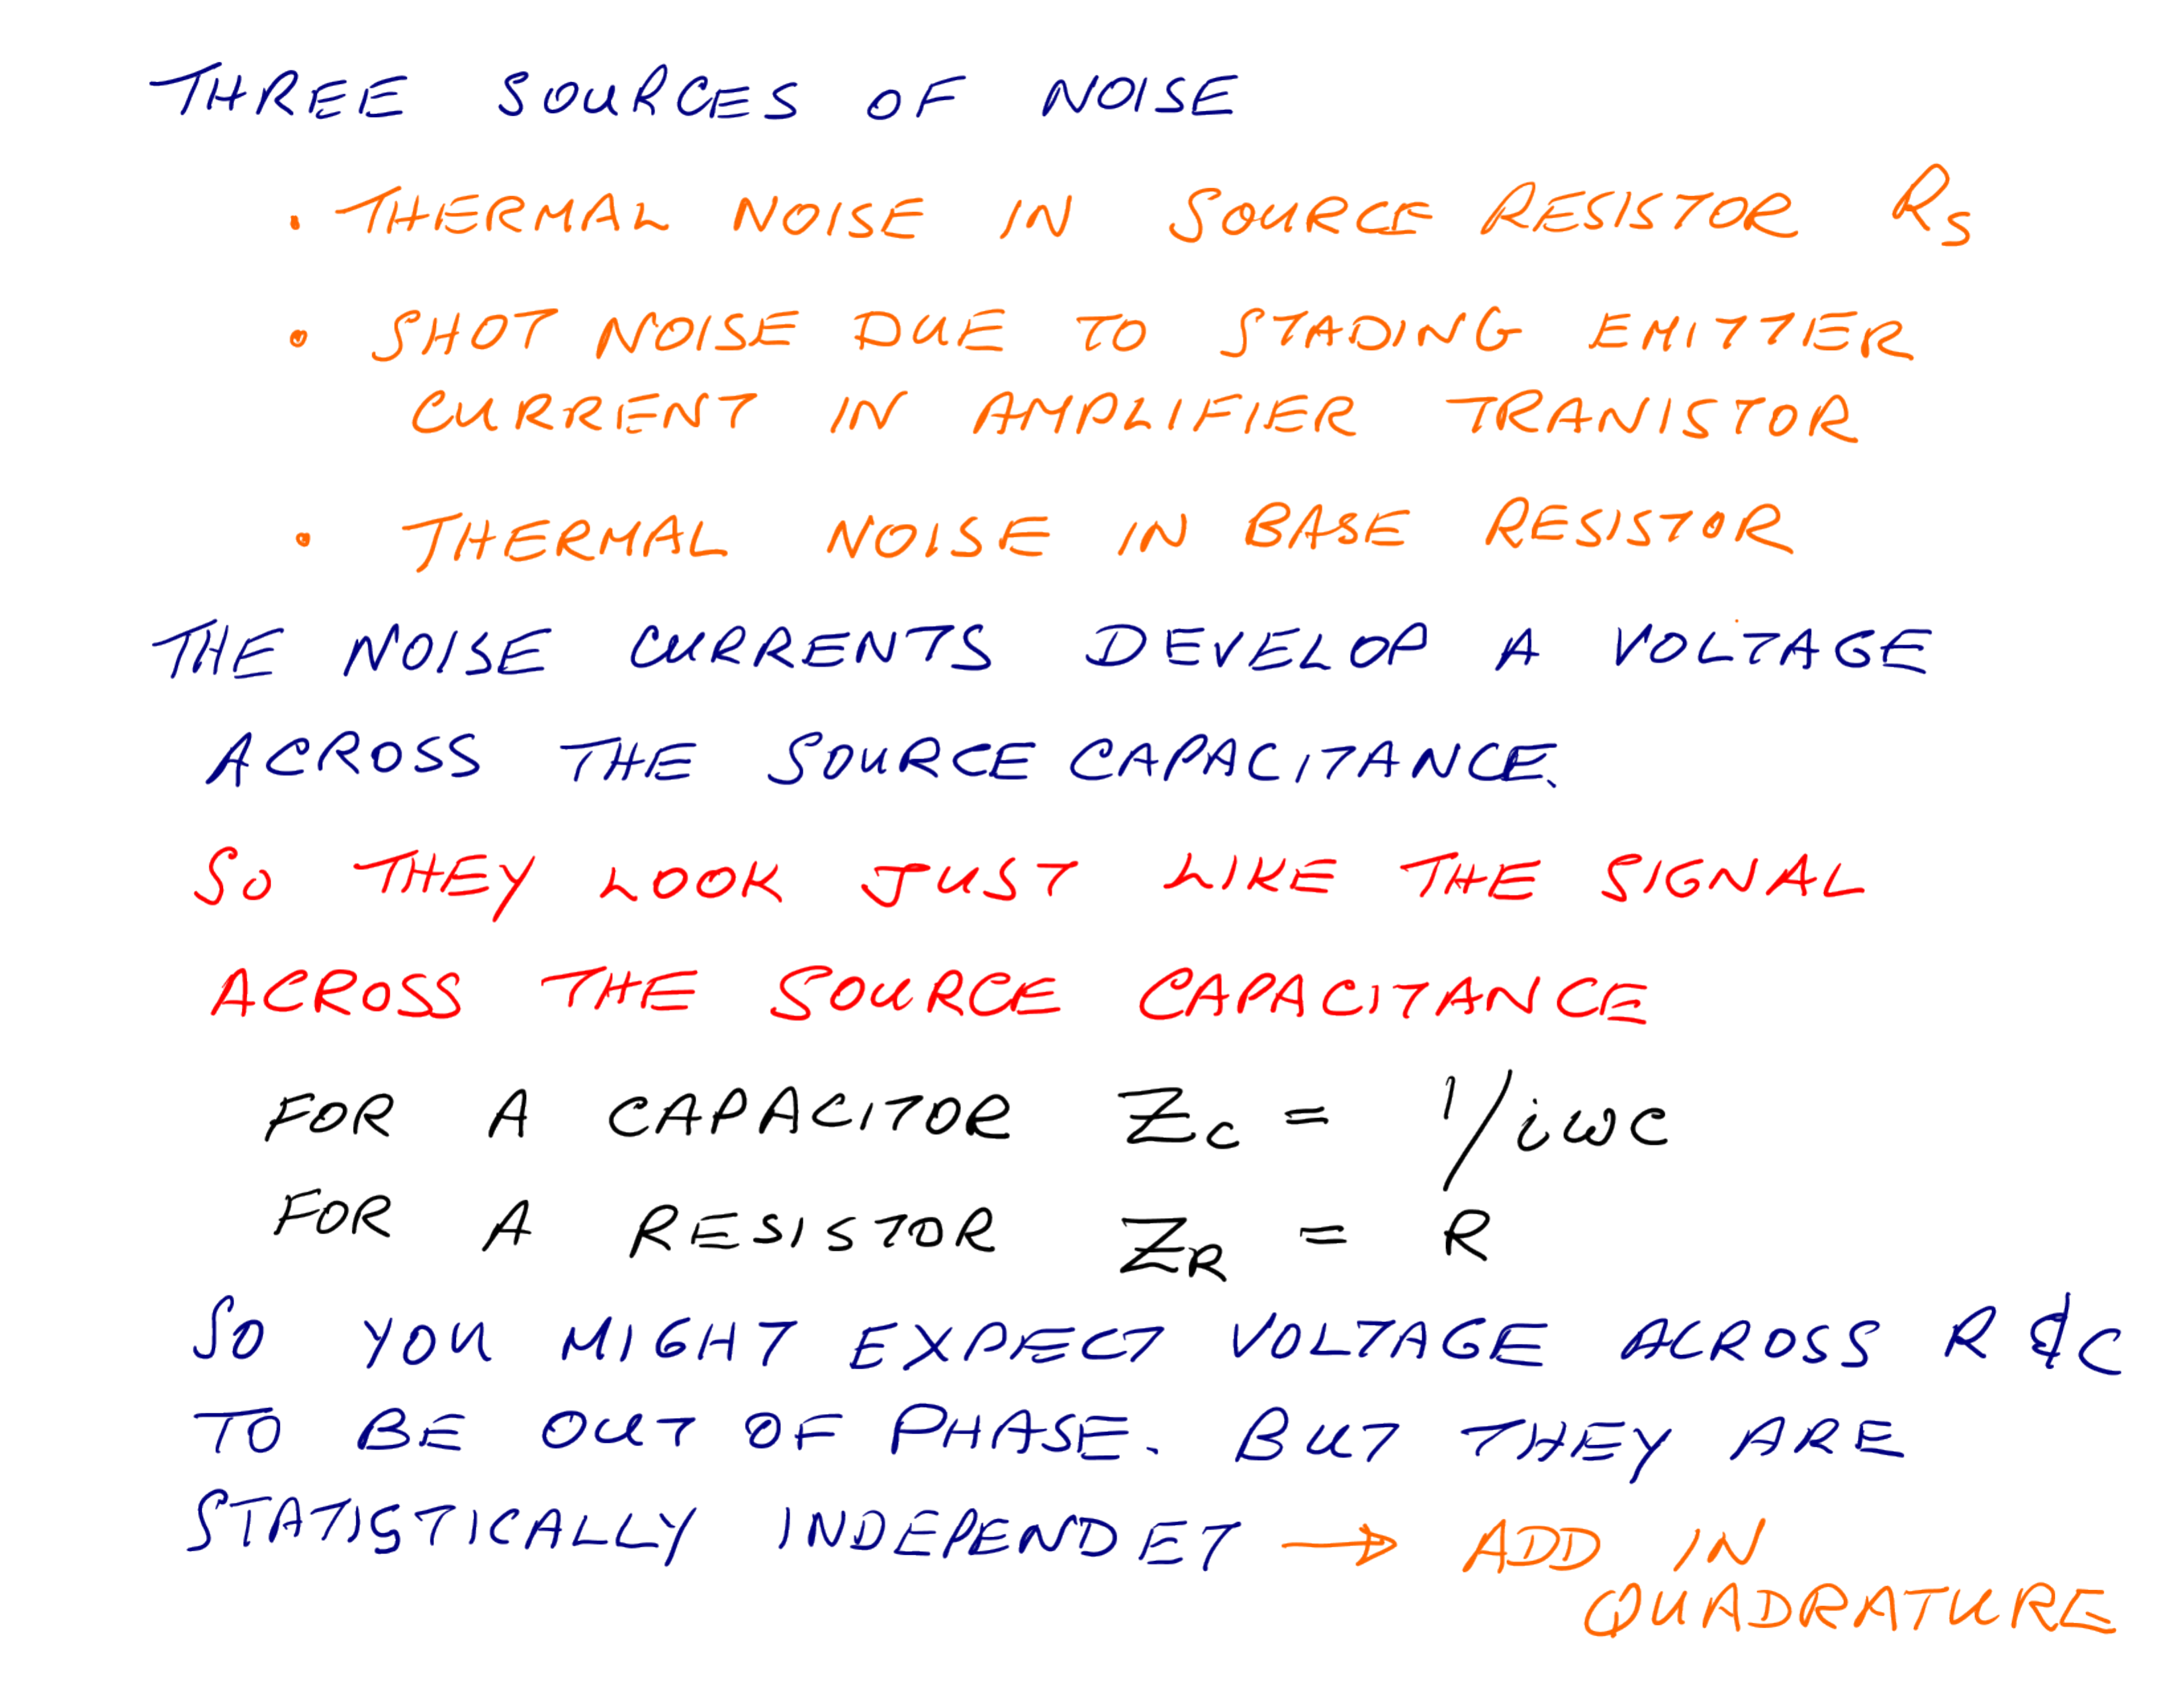 THREE SOURCES OF NOISE
• THERMAL NOISE IN SOURCE RESISTOR Rs
• SHOT NOISE DUE TO STADING EMITTER
CURRENT IN AMPLIFIER TRANISTOR
• THERMAL NOISE IN BASE RESISTOR
THE NOISE CURRENTS DEVELOP A VOLTAGE
ACROSS THE SOURCE CAPACITANCE.
SO THEY LOOK JUST LIKE THE SIGNAL
ACROSS THE SOURCE CAPACITANCE
FOR A CAPACITOR Zc = 1/iwc
FOR A RESISTOR ZR = R
SO YOU MIGHT EXPECT VOLTAGE ACROSS R & C
TO BE OUT OF PHASE. BUT THEY ARE
STATISTICALLY INDEPENDET → ADD IN
QUADRATURE